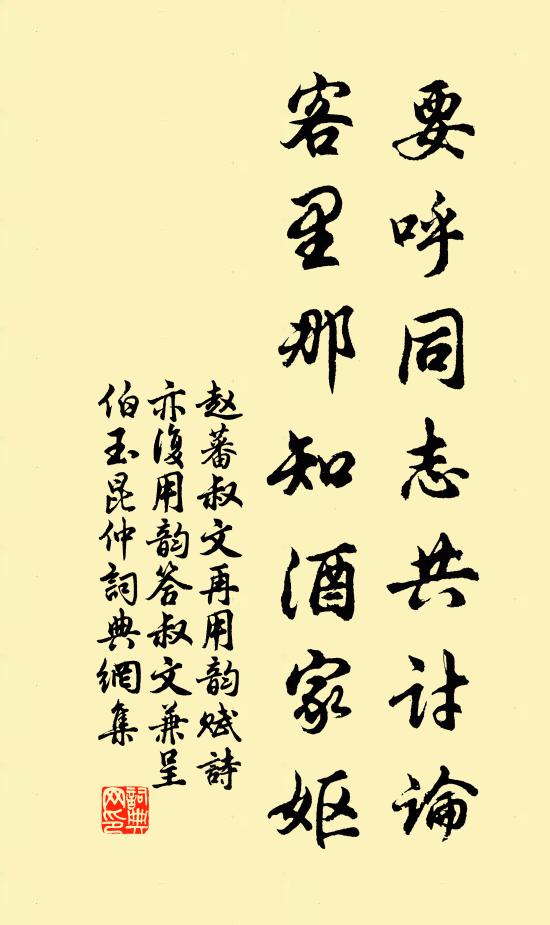 要呼同志共討論
客里那知酒家嫗
赵蕃叔文再用韵赋詩
亦復用韵答叔文兼呈
伯玉昆仲詞典網集
詞典
网印